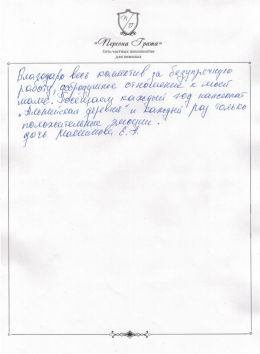 «Персона Грата»
Сеть частных пансионатов
для пожилых
Благодарю весь коллектив за безупречную
работу, добродушное отношение к моей
маме. Посещаем каждый год пансионат
"Альпийская деревня" и каждый раз только
положительные эмоции.
дочь Е. А.